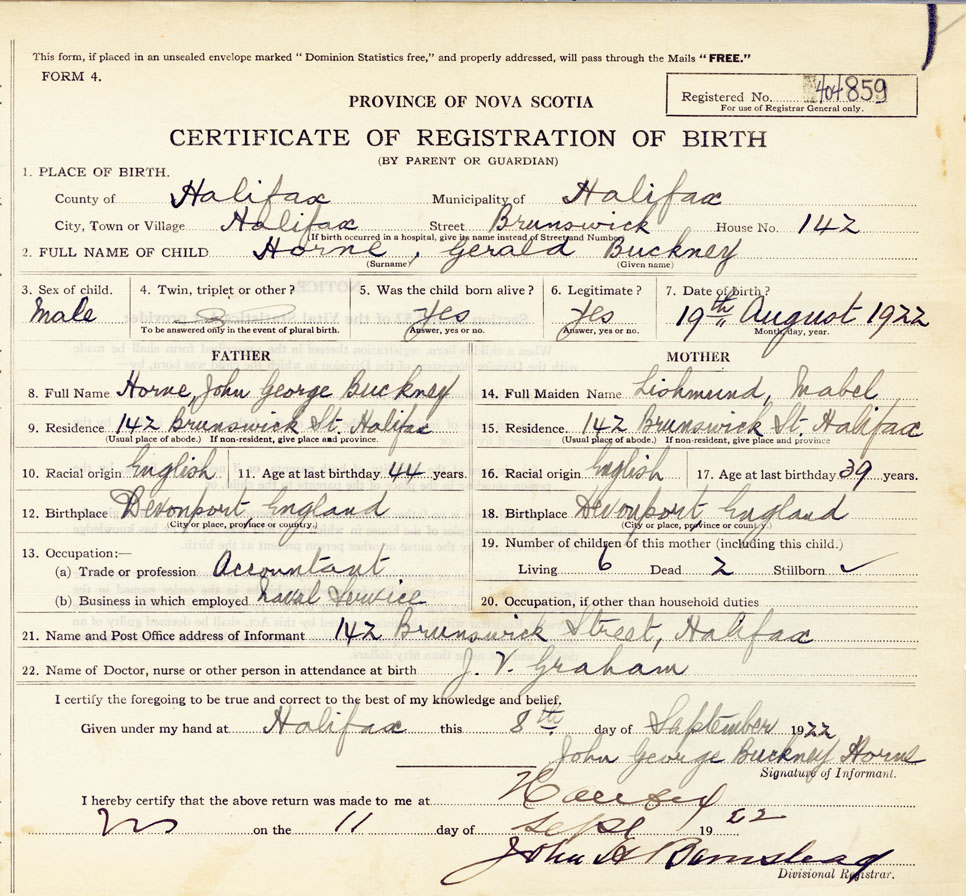 This form, if placed in an unsealed envelope marked "Dominion Statistics free," and properly addressed, will pass through the Mails "FREE."
FORM 4.
Registered No. 404859
For use of Registrar General only.
PROVINCE OF NOVA SCOTIA
CERTIFICATE OF REGISTRATION OF BIRTH
(BY PARENT OR GUARDIAN)
1. PLACE OF BIRTH.
County of Halifax Municipality of Halifax
City, Town or Village Halifax Street Brunswick House No. 142
(If birth occurred in a hospital, give its name instead of Street and Number)
2. FULL NAME OF CHILD Horne, Gerald Buckney
(Surname) (Given name)
3. Sex of child. 4. Twin, triplet or other? 5. Was the child born alive? 6. Legitimate? 7. Date of birth?
Male yes yes 19th August 1922
To be answered only in the event of plural birth. Answer, yes or no. Answer, yes or no. Month, day, year.
FATHER MOTHER
8. Full Name Horne, John George Buckney 14. Full Maiden Name Mabel
9. Residence 142 Brunswick St. Halifax 15. Residence. 142 Brunswick St. Halifax
(Usual place of abode.) If non-resident, give place and province. (Usual place of abode.) If non-resident, give place and province
10. Racial origin English 11. Age at last birthday 44 years. 16. Racial origin English 17. Age at last birthday 39 years.
12. Birthplace Devonport England 18. Birthplace Devonport England
(City or place, province or country.) (City or place, province or country.)
13. Occupation:— 19. Number of children of this mother (including this child.)
(a) Trade or profession Accountant Living 6 Dead 2 Stillborn ✓
(b) Business in which employed Naval Service 20. Occupation, if other than household duties
21. Name and Post Office address of Informant 142 Brunswick Street, Halifax
22. Name of Doctor, nurse or other person in attendance at birth J. V. Graham
I certify the foregoing to be true and correct to the best of my knowledge and belief.
Given under my hand at Halifax this 8th day of September 1922
John George Buckney Horne
Signature of Informant.
I hereby certify that the above return was made to me at Halifax
NS on the 11 day of Sept 1922
John A Barnstead
Divisional Registrar.